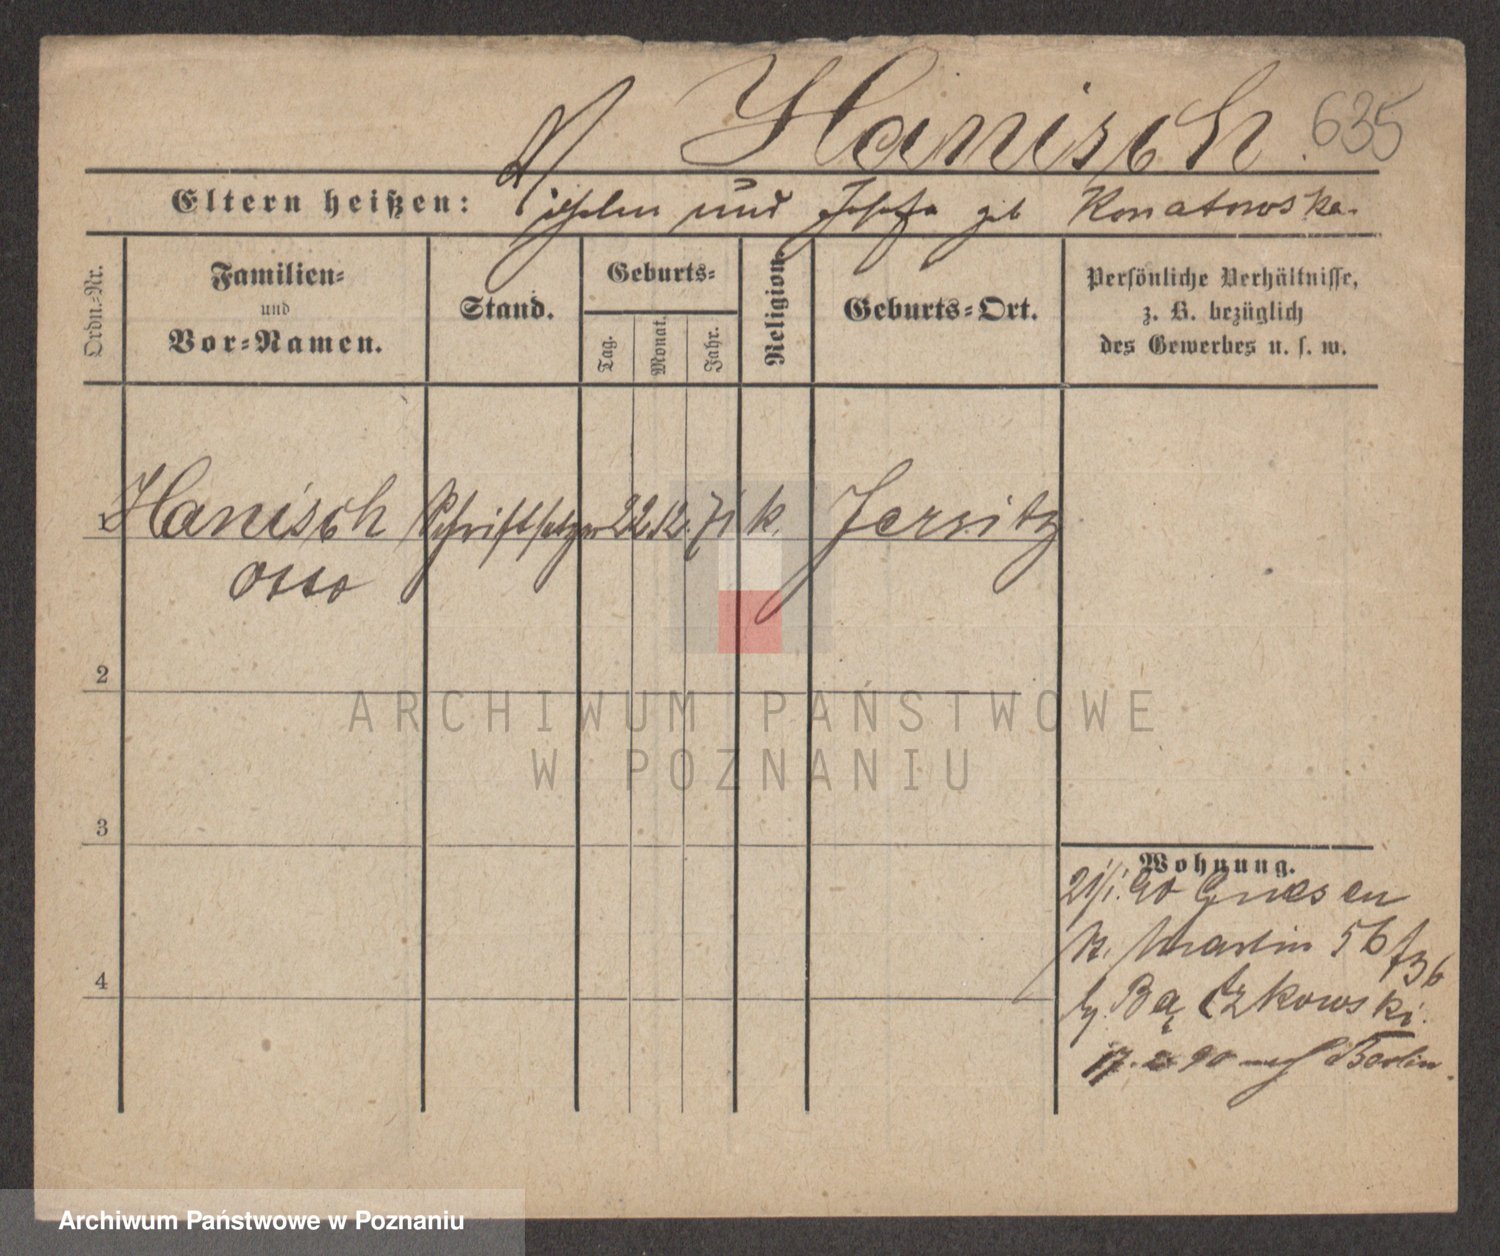 Hanisch. 635
Eltern heißen: und Josefa geb Konatowska.
Ordn.-Nr.
Familien-
und
Vor-Namen.
Stand.
Geburts-
Tag.
Monat.
Jahr.
Religion.
Geburts-Ort.
Persönliche Verhältnisse,
z. B. bezüglich
des Gewerbes u. s. w.
1 Hanisch Schriftsetzer 22. 12. 71 k. Jersitz
Otto
2
ARCHIWUM PAŃSTWOWE
W POZNANIU
3
4
Wohnung.
21/1. 90 Gnesen
St. Martin 56
Bączkowski.
17. 2 90 nach Berlin.
Archiwum Państwowe w Poznaniu